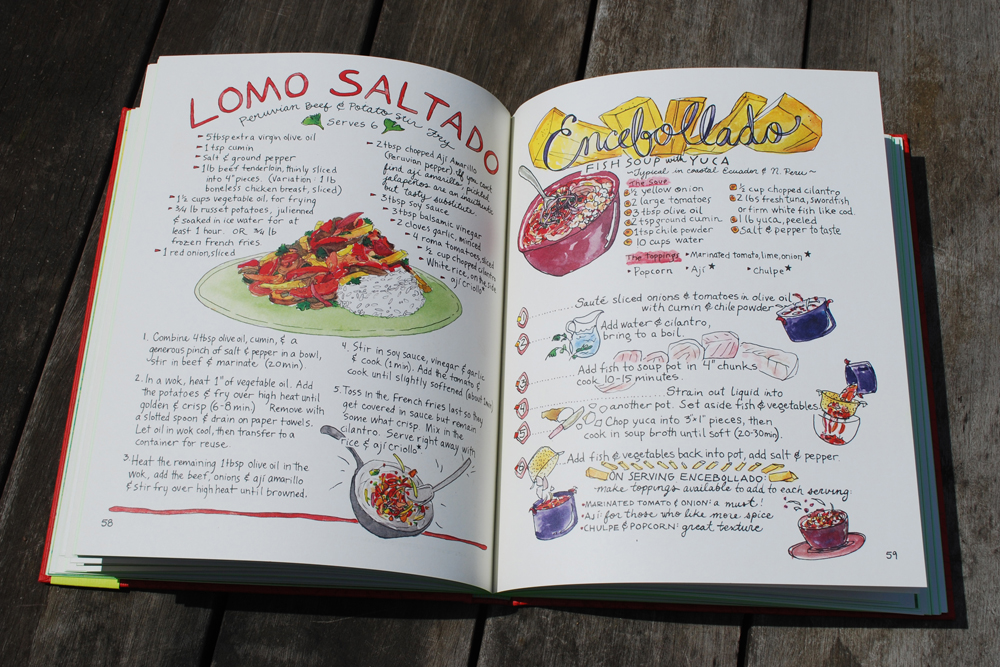 LOMO SALTADO
Peruvian Beef & Potato Stir Fry
Serves 6
5 tbsp extra virgin olive oil
1 tsp cumin
Salt & ground pepper
1 lb beef tenderloin, thinly sliced
into 4" pieces. (Variation: 1 lb
boneless chicken breast, sliced)
1 1/2 cups vegetable oil, for frying
3/4 lb russet potatoes, julienned
& soaked in ice water for at
least 1 hour. OR 3/4 lb
frozen French fries
1 red onion, sliced
2 tbsp chopped Ají Amarillo
(Peruvian pepper). If you can't
find ají amarillo, pickled
jalapeños are an inauthentic
but tasty substitute
3 tbsp soy sauce
3 tbsp balsamic vinegar
2 cloves garlic, minced
4 roma tomatoes, sliced
1/2 cup chopped cilantro
White rice, on the side
ají criollo*
1. Combine 4 tbsp olive oil, cumin, & a
generous pinch of salt & pepper in a bowl,
stir in beef & marinate (20 min).
2. In a wok, heat 1" of vegetable oil. Add
the potatoes & fry over high heat until
golden & crisp (6-8 min). Remove with
a slotted spoon & drain on paper towels.
Let oil in wok cool, then transfer to a
container for reuse.
3. Heat the remaining 1 tbsp olive oil in the
wok, add the beef, onions & ají amarillo
& stir fry over high heat until browned.
4. Stir in soy sauce, vinegar & garlic
& cook (1 min). Add the tomato &
cook until slightly softened (about 1 min)
5. Toss in the French fries last so they
get covered in sauce but remain
some what crisp. Mix in the
cilantro. Serve right away with
rice & ají criollo*
58
Encebollado
FISH SOUP with YUCA
~Typical in coastal Ecuador & N. Peru~
The Soup
1/2 yellow onion
2 large tomatoes
3 tbsp olive oil
2 tsp ground cumin
1 tsp chile powder
10 cups water
1/2 cup chopped cilantro
2 lbs fresh tuna, swordfish
or firm white fish like cod
1 lb yuca, peeled
Salt & pepper to taste
The Toppings
• Marinated tomato, lime, onion*
• Popcorn • Ají* • Chulpe*
1 Sauté sliced onions & tomatoes in olive oil
with cumin & chile powder
2 Add water & cilantro,
bring to a boil.
3 Add fish to soup pot in 4" chunks
cook 10-15 minutes.
4 Strain out liquid into
another pot. Set aside fish & vegetables
5 Chop yuca into 3x1" pieces, then
cook in soup broth until soft (20-30min).
6 Add fish & vegetables back into pot, add salt & pepper
ON SERVING ENCEBOLLADO:
make toppings available to add to each serving:
•MARINATED TOMATO & ONION: a must!
•AJÍ: for those who like more spice
•CHULPE & POPCORN: great texture
59